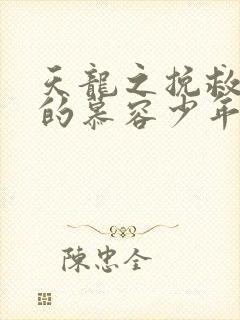 天龍之挽救
的慕容少年
陳忠全